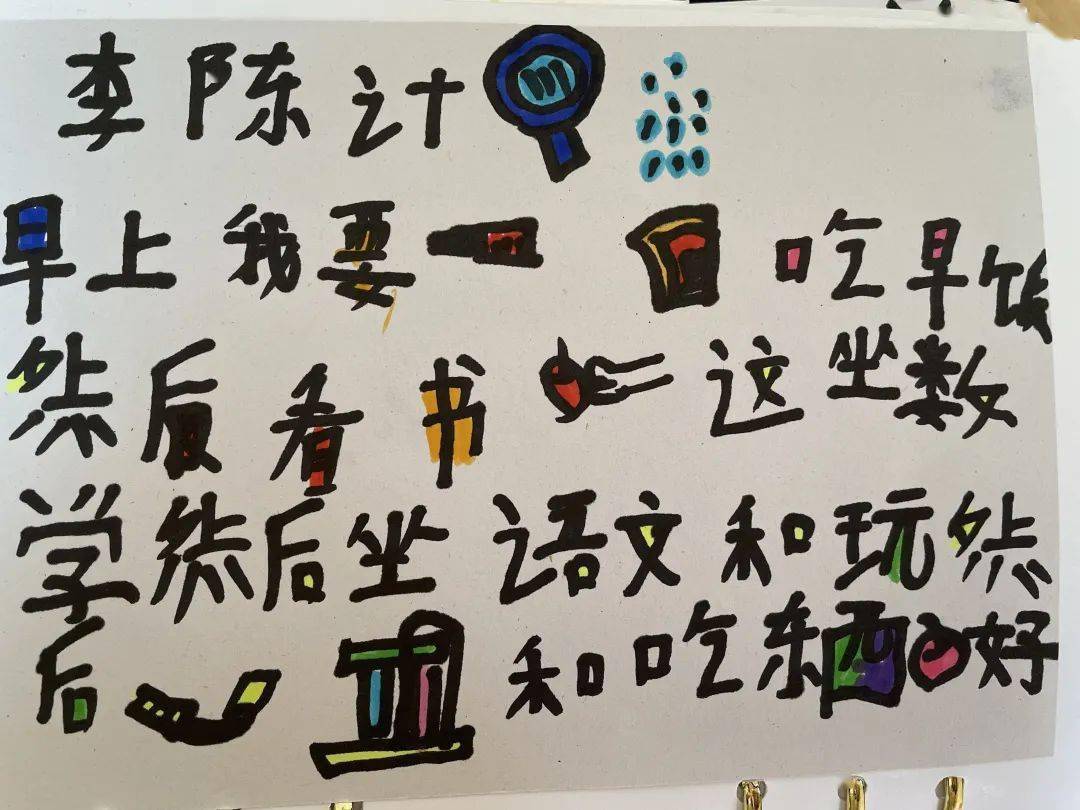 李陈计
早上我要吃早饭
然后看书这坐数
学然后坐语文和玩然
后和吃东西好